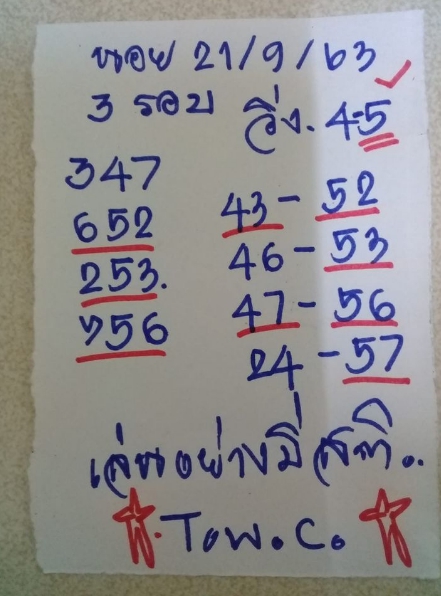 ฮอย 21/9/63
3 รอบ วิ่ง. 4-5
347
652
253.
756
43 - 52
46 - 53
47 - 56
24 - 57
เล่นอย่างมีสติ..
Tow.C.